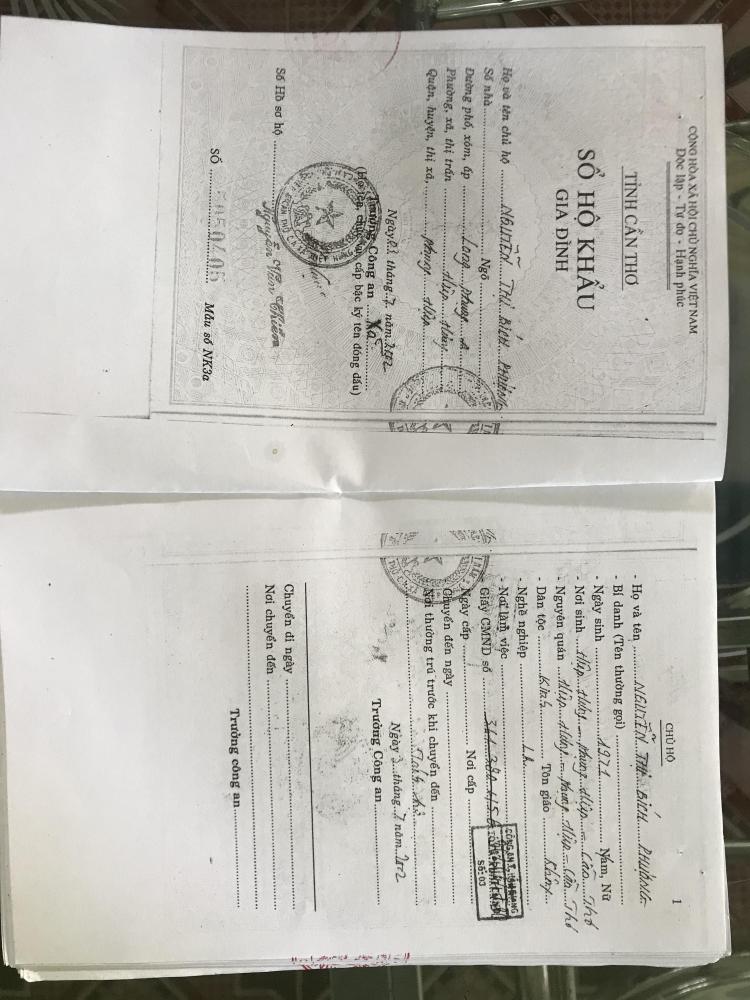 CỘNG HÒA XÃ HỘI CHỦ NGHĨA VIỆT NAM
Độc lập - Tự do - Hạnh phúc
TỈNH CẦN THƠ
SỔ HỘ KHẨU
GIA ĐÌNH
Họ và tên chủ hộ NGUYỄN THỊ BÍCH PHƯỢNG
Số nhà Ngõ
Đường phố, xóm, ấp Long Phụng A
Phường, xã, thị trấn Hiệp Hưng
Quận, huyện, thị xã, Phụng Hiệp
Ngày 02 tháng 7 năm 2002
Trưởng Công an Xã
(Họ tên, chức vụ, cấp bậc ký tên đóng dấu)
Số Hồ sơ hộ
Nguyễn Văn
SỐ 050405 Mẫu số NK3a
1
CHỦ HỘ
- Họ và tên NGUYỄN THỊ BÍCH PHƯỢNG
- Bí danh (Tên thường gọi)
- Ngày sinh 1971 Nam, Nữ
- Nơi sinh Hiệp Hưng - Phụng Hiệp - Cần Thơ
- Nguyên quán Hiệp Hưng - Phụng Hiệp - Cần Thơ
- Dân tộc Kinh Tôn giáo Không
- Nghề nghiệp LR
- Nơi làm việc
Giấy CMND số
Ngày cấp Nơi cấp
Chuyển đến ngày
Nơi thường trú trước khi chuyển đến
Ngày 2 tháng 7 năm 2002
Trưởng Công an
Chuyển đi ngày
Nơi chuyển đến
Trưởng công an
SỐ: 03